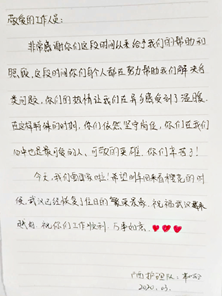 敬爱的工作人员：
非常感谢你们这段时间以来给予我们的帮助和
照顾，这段时间你们每个人都在努力帮助我们解决各
类问题，你们的热情让我们在异乡感受到了温暖，
在这特殊的时刻，你们依然坚守岗位，你们在我们
心中也是最可爱的人，可敬的英雄，你们辛苦了！
今天，我们要回家啦！希望明年回来看樱花的时
候，武汉已经恢复了往日的繁荣景象，祝福武汉
祝你们工作顺利，万事如意。
广西护理队：
2020.03.